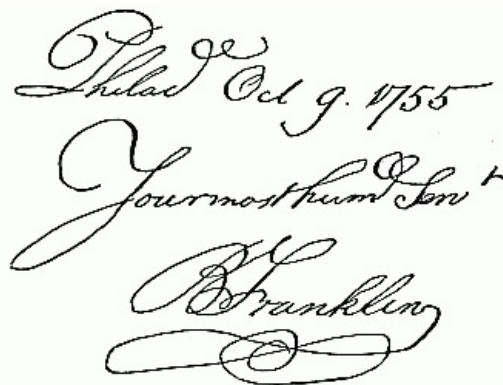 Philadᵉ Oct 9. 1755
Your most humᵉ Servᵗ
B Franklin